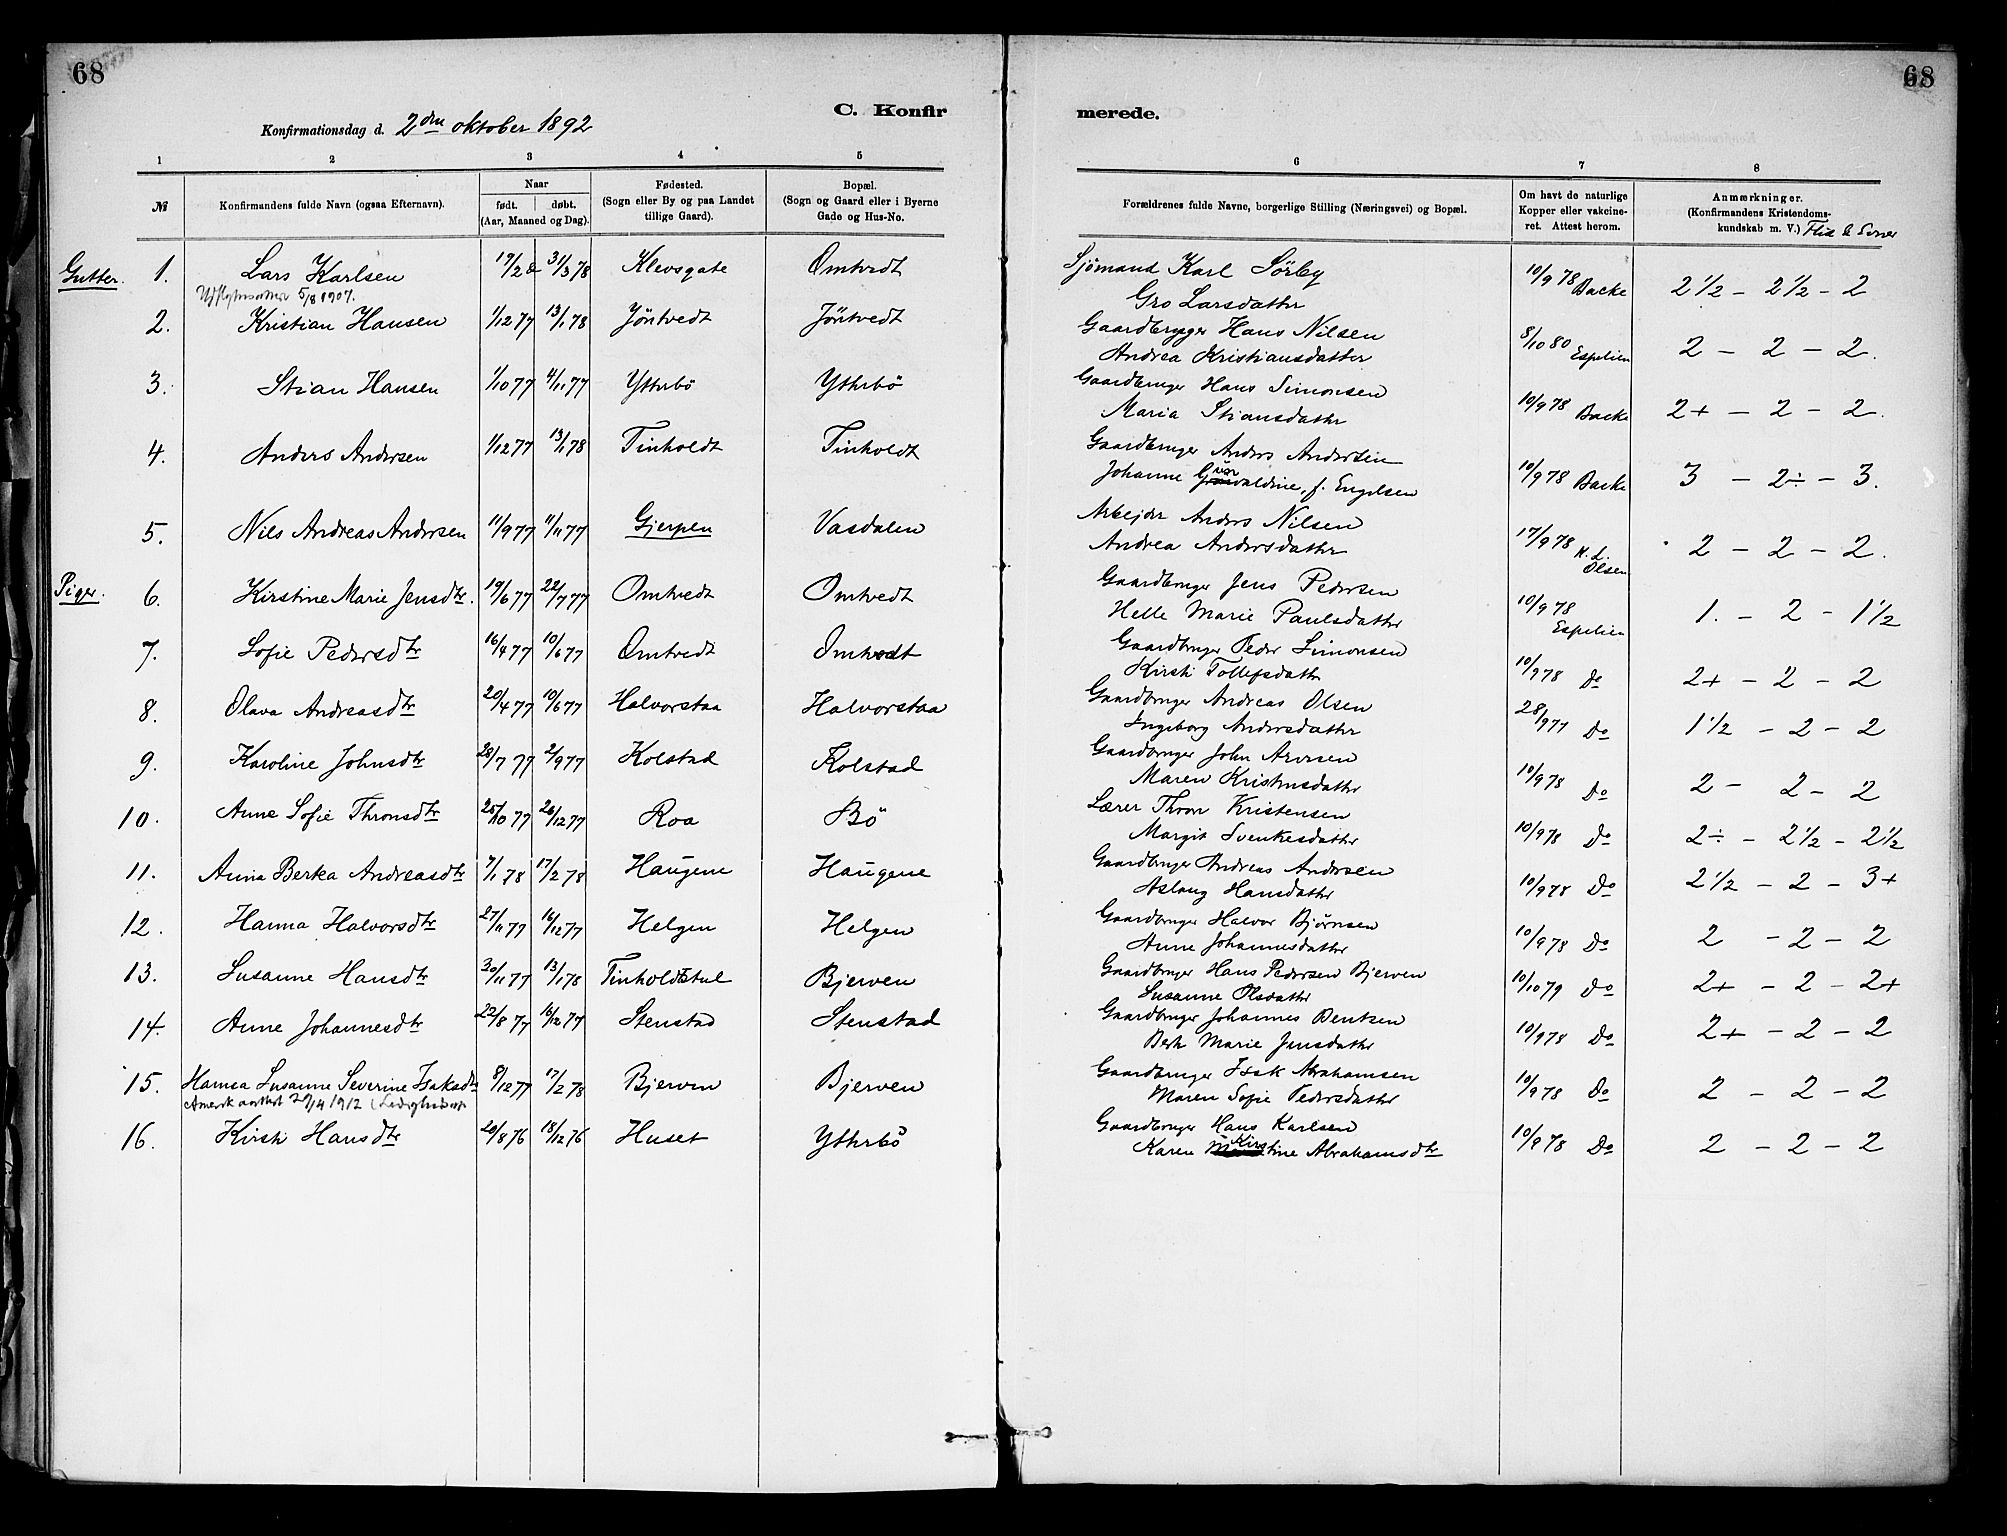 68
68
C. Konfir
merede.
Konfirmationsdag d. 2den oktober 1892
1 2 3 4 5 6 7 8
№
Konfirmandens fulde Navn (ogsaa Efternavn).
Naar
født. døbt.
(Aar, Maaned og Dag).
Fødested.
(Sogn eller By og paa Landet
tillige Gaard).
Bopæl.
(Sogn og Gaard eller i Byerne
Gade og Hus-No.
Forældrenes fulde Navne, borgerlige Stilling (Næringsvei) og Bopæl.
Om havt de naturlige
Kopper eller vakcine-
ret. Attest herom.
Anmærkninger.
(Konfirmandens Kristendoms-
kundskab m. V.) Flid & Evner
Gutter. 1. Lars Karlsen 31/3 78 Klevsgate Omtvedt Sjömand Karl Sörby 10/9 78 Backe 2 1/2 – 2 1/2 – 2
5/8 1907.
Gro Larsdatter
2. Kristian Hansen 1/12 77 13/1 78 Jöntvedt Jöntvedt Gaardbruger Hans Nilsen 8/10 80 Espelien 2 – 2 – 2.
Andrea Kristiansdatter
3. Stian Hansen 1/10 77 4/11 77 Ytterbö Ytterbö Gaardbruger Hans Simonsen
Maria Stiansdatter 10/9 78 Backe 2+ – 2 – 2.
4. Anders Andersen 1/12 77 13/1 78 Tinholdt Tinholdt Gaardbruger Anders Andersen
Johanne f. Engelsen 10/9 78 Backe 3 – 2÷ – 3.
5. Nils Andreas Andersen 11/9 77 11/11 77 Gjerpen Vasdalen Arbejder Anders Nilsen
Andrea Andersdatter 17/9 78 H. L. Olsen 2 – 2 – 2.
Piger. 6. Kirstine Marie Jensdtr. 19/6 77 22/7 77 Omtvedt Omtvedt Gaardbruger Jens Pedersen
Helle Marie Paulsdatter 10/9 78 Espelien 1. – 2 – 1 1/2
7. Sofie Pedersdtr 16/4 77 10/6 77 Omtvedt Omtvedt Gaardbruger Peder Simonsen
Kirsti Tollefsdatter 10/9 78 Do 2+ – 2 – 2
8. Olava Andreasdtr 20/4 77 10/6 77 Halvorstaa Halvorstaa Gaardbruger Andreas Olsen
Ingeborg Andersdatter 28/9 77 Do 1 1/2 – 2 – 2
9. Karoline Johnsdtr 28/7 77 2/9 77 Kolstad Kolstad Gaardbruger John Arvesen
Maren Kristensdatter 10/9 78 Do 2 – 2 – 2
10. Anne Sofie Thronsdtr 26/12 77 Roa Bö Lærer Thron Kristensen
Margit Svenkesdatter 10/9 78 Do 2÷ – 2 1/2 – 2 1/2
11. Anna Berka Andreasdtr 7/1 78 17/2 78 Haugene Haugene Gaardbruger Andreas Andersen
Aslaug Hansdatter 10/9 78 Do 2 1/2 – 2 – 3+
12. Hanna Halvorsdtr 27/11 77 16/12 77 Helgen Helgen Gaardbruger Halvor Bjørnsen
Anne Johannesdatter 10/9 78 Do 2 – 2 – 2
13. Susanne Hansdtr 30/11 77 13/1 78 Tinholdtstul Bjerven Gaardbruger Hans Pedersen Bjerven
Susanne Olsdatter 10/10 79 Do 2+ – 2 – 2+
14. Anne Johannesdtr 22/8 77 16/12 77 Stenstad Stenstad Gaardbruger Johannes Bentsen
Berte Marie Jensdatter 10/9 78 Do 2+ – 2 – 2
15. Hansea Susanne Severine Isaksdtr 8/12 77 17/2 78 Bjerven Bjerven Gaardbruger Isak Abrahamsen
29/4 1912
Maren Sofie Pedersdatter 10/9 78 Do 2 – 2 – 2
16. Kirsti Hansdtr 20/8 76 18/12 76 Huset Ytterbö Gaardbruger Hans Karlsen
Karen Kirstine Abrahamsdtr 10/9 78 Do 2 – 2 – 2